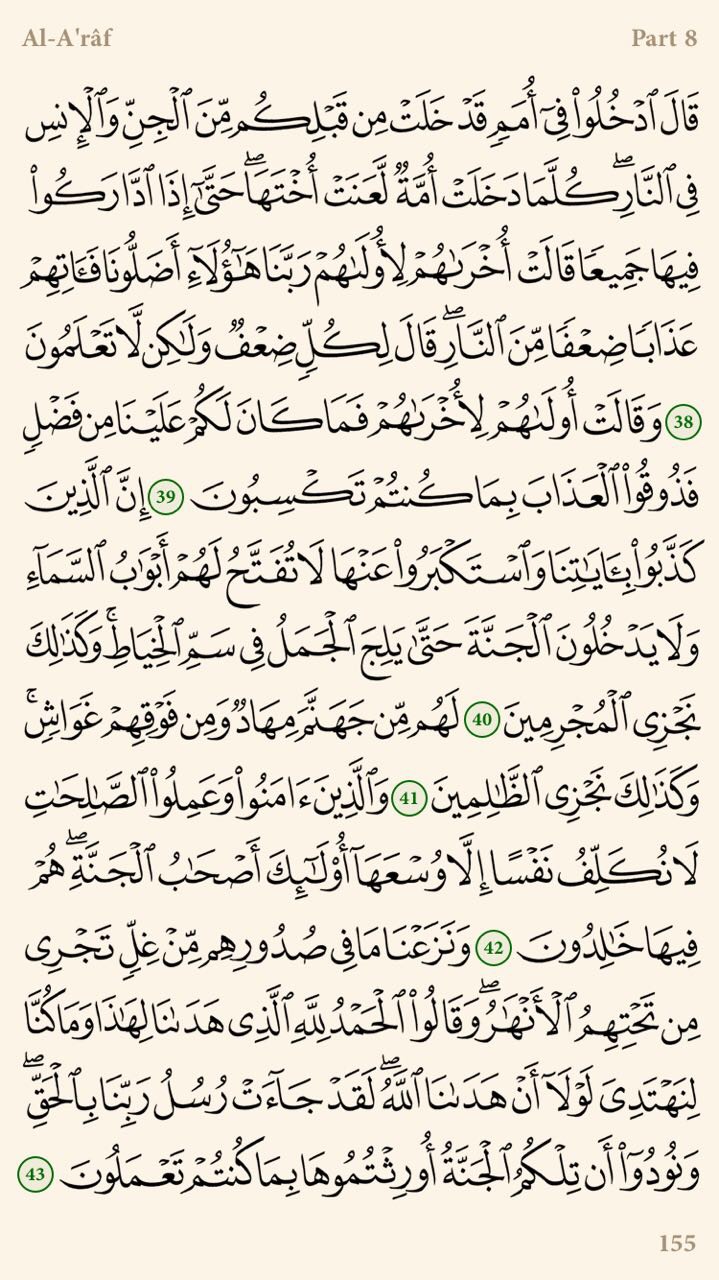 Al-A'râf Part 8
قَالَ ٱدۡخُلُواْ فِيٓ أُمَمٖ قَدۡ خَلَتۡ مِن قَبۡلِكُم مِّنَ ٱلۡجِنِّ وَٱلۡإِنسِ
فِي ٱلنَّارِۖ كُلَّمَا دَخَلَتۡ أُمَّةٞ لَّعَنَتۡ أُخۡتَهَاۖ حَتَّىٰٓ إِذَا ٱدَّارَكُواْ
فِيهَا جَمِيعٗا قَالَتۡ أُخۡرَىٰهُمۡ لِأُولَىٰهُمۡ رَبَّنَا هَٰٓؤُلَآءِ أَضَلُّونَا فَـَٔاتِهِمۡ
عَذَابٗا ضِعۡفٗا مِّنَ ٱلنَّارِۖ قَالَ لِكُلّٖ ضِعۡفٞ وَلَٰكِن لَّا تَعۡلَمُونَ
38 وَقَالَتۡ أُولَىٰهُمۡ لِأُخۡرَىٰهُمۡ فَمَا كَانَ لَكُمۡ عَلَيۡنَا مِن فَضۡلٖ
فَذُوقُواْ ٱلۡعَذَابَ بِمَا كُنتُمۡ تَكۡسِبُونَ 39 إِنَّ ٱلَّذِينَ
كَذَّبُواْ بِـَٔايَٰتِنَا وَٱسۡتَكۡبَرُواْ عَنۡهَا لَا تُفَتَّحُ لَهُمۡ أَبۡوَٰبُ ٱلسَّمَآءِ
وَلَا يَدۡخُلُونَ ٱلۡجَنَّةَ حَتَّىٰ يَلِجَ ٱلۡجَمَلُ فِي سَمِّ ٱلۡخِيَاطِۚ وَكَذَٰلِكَ
نَجۡزِي ٱلۡمُجۡرِمِينَ 40 لَهُم مِّن جَهَنَّمَ مِهَادٞ وَمِن فَوۡقِهِمۡ غَوَاشٖۚ
وَكَذَٰلِكَ نَجۡزِي ٱلظَّٰلِمِينَ 41 وَٱلَّذِينَ ءَامَنُواْ وَعَمِلُواْ ٱلصَّٰلِحَٰتِ
لَا نُكَلِّفُ نَفۡسًا إِلَّا وُسۡعَهَآ أُوْلَٰٓئِكَ أَصۡحَٰبُ ٱلۡجَنَّةِۖ هُمۡ
فِيهَا خَٰلِدُونَ 42 وَنَزَعۡنَا مَا فِي صُدُورِهِم مِّنۡ غِلّٖ تَجۡرِي
مِن تَحۡتِهِمُ ٱلۡأَنۡهَٰرُۖ وَقَالُواْ ٱلۡحَمۡدُ لِلَّهِ ٱلَّذِي هَدَىٰنَا لِهَٰذَا وَمَا كُنَّا
لِنَهۡتَدِيَ لَوۡلَآ أَنۡ هَدَىٰنَا ٱللَّهُۖ لَقَدۡ جَآءَتۡ رُسُلُ رَبِّنَا بِٱلۡحَقِّۖ
وَنُودُوٓاْ أَن تِلۡكُمُ ٱلۡجَنَّةُ أُورِثۡتُمُوهَا بِمَا كُنتُمۡ تَعۡمَلُونَ 43
155